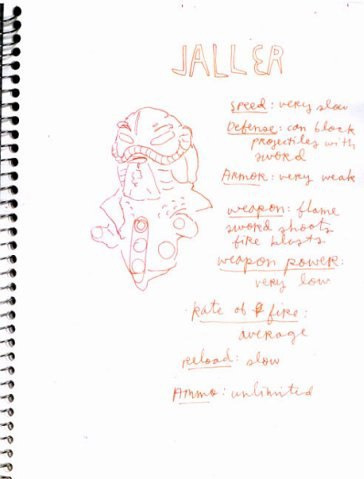 JALLER
Speed: very slow
Defense: can block
projectiles with
sword
Armor: very weak
weapon: flame
sword shoots
fire blasts
weapon power:
very low
Rate of fire:
average
reload: slow
Ammo: unlimited